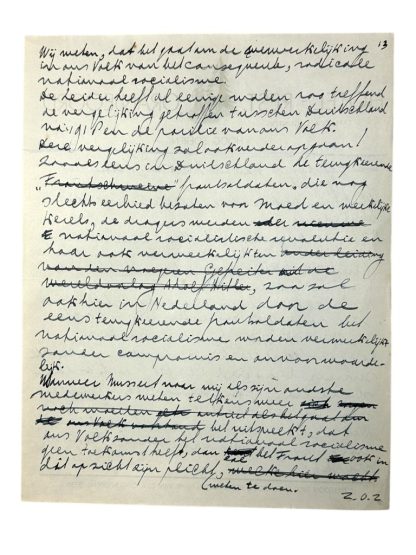 13
Wij weten, dat het gaat om de verwerkelijking
in ons Volk van het consequente, radicale
nationaal socialisme.
De Leider heeft al eenige malen zoo treffend
de vergelijking getroffen tusschen Duitschland
na 1918 en de positie van ons Volk.
Deze vergelijking zal ook verder opgaan!
Zooals eens in Duitschland de terugkeerende
"Frontschweine" frontsoldaten, die nog
slechts eerbied bezaten voor Moed en werkelijke
kerels, de dragers werden der nieuwe
nationaal socialistische revolutie en
haar ook verwerkelijkten onder leiding
van den vroegeren Gefreiter uit de
wereldoorlog Adolf Hitler, zoo zal
ook hier in Nederland door de
eens terugkeerende frontsoldaten het
nationaal socialisme worden verwerkelijkt
zonder compromis en onvoorwaarde-
lijk.
Wanneer Mussert voor mij als zijn oudste
medewerkers weten telkens weer
noch moeten als het gaat om
ons Volk het uitspreekt, dat
ons Volk zonder het nationaal socialisme
geen toekomst heeft, dan zal het Front ook in
dit opzicht zijn plicht, welke hier wacht
weten te doen.
Z.O.Z